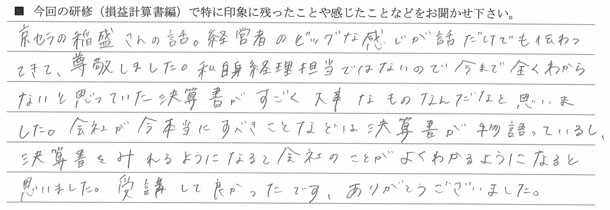 ■ 今回の研修（損益計算書編）で特に印象に残ったことや感じたことなどをお聞かせ下さい。
京セラの稲盛さんの話。経営者のビッグな感じが話だけでも伝わっ
てきて、尊敬しました。私自身経理担当ではないので今まで全くわから
ないと思っていた決算書がすごく大事なものなんだなと思いま
した。会社が今本当にすべきことなどは決算書が物語っているし、
決算書をみれるようになると会社のことがよくわかるようになると
思いました。受講して良かったです、ありがとうございました。